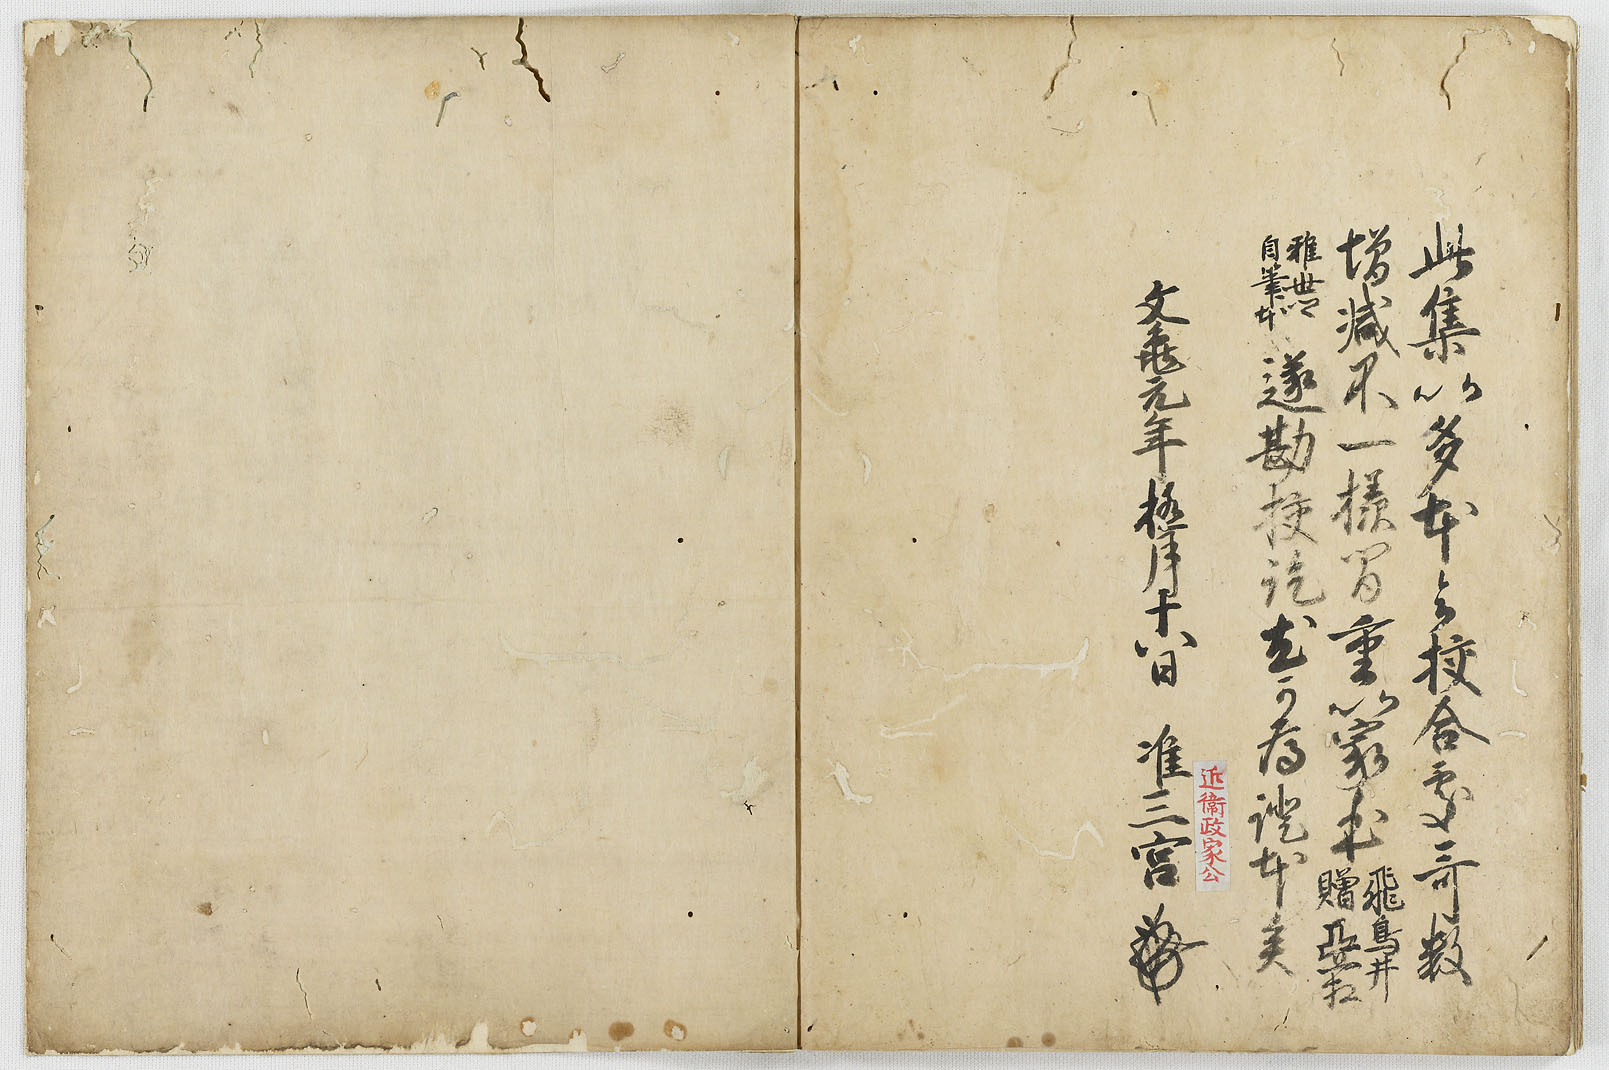 此集以多本令校合處哥数
増減不一樣間重以家本
飛鳥井
贈亞相
雅世卿
自筆本
遂勘挍訖尤可為證本矣
文亀元年極月十八日 准三宮
近衛政家公